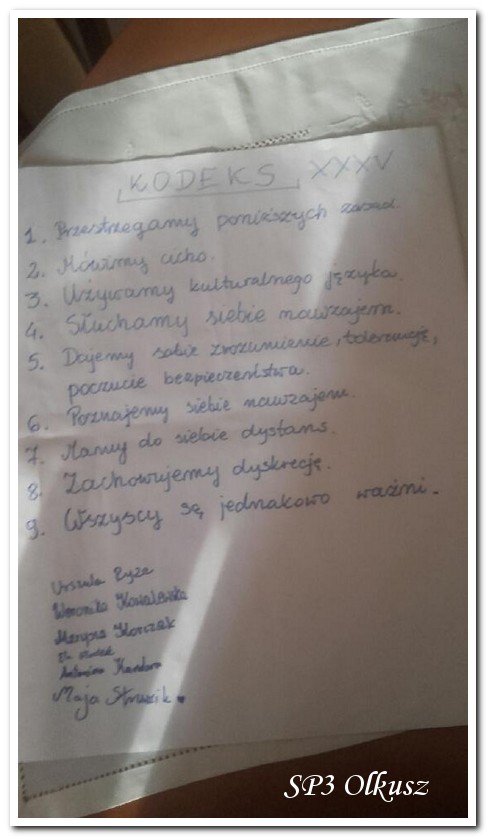 KODEKS XXXV
1. Przestrzegamy poniższych zasad.
2. Mówimy cicho.
3. Używamy kulturalnego języka.
4. Słuchamy siebie nawzajem.
5. Dajemy sobie zrozumienie, tolerancję,
poczucie bezpieczeństwa.
6. Poznajemy siebie nawzajem.
7. Mamy do siebie dystans.
8. Zachowujemy dyskrecję.
9. Wszyscy są jednakowo ważni.
Urszula
Weronika Kowalewska
Korczak
Maja
SP3 Olkusz